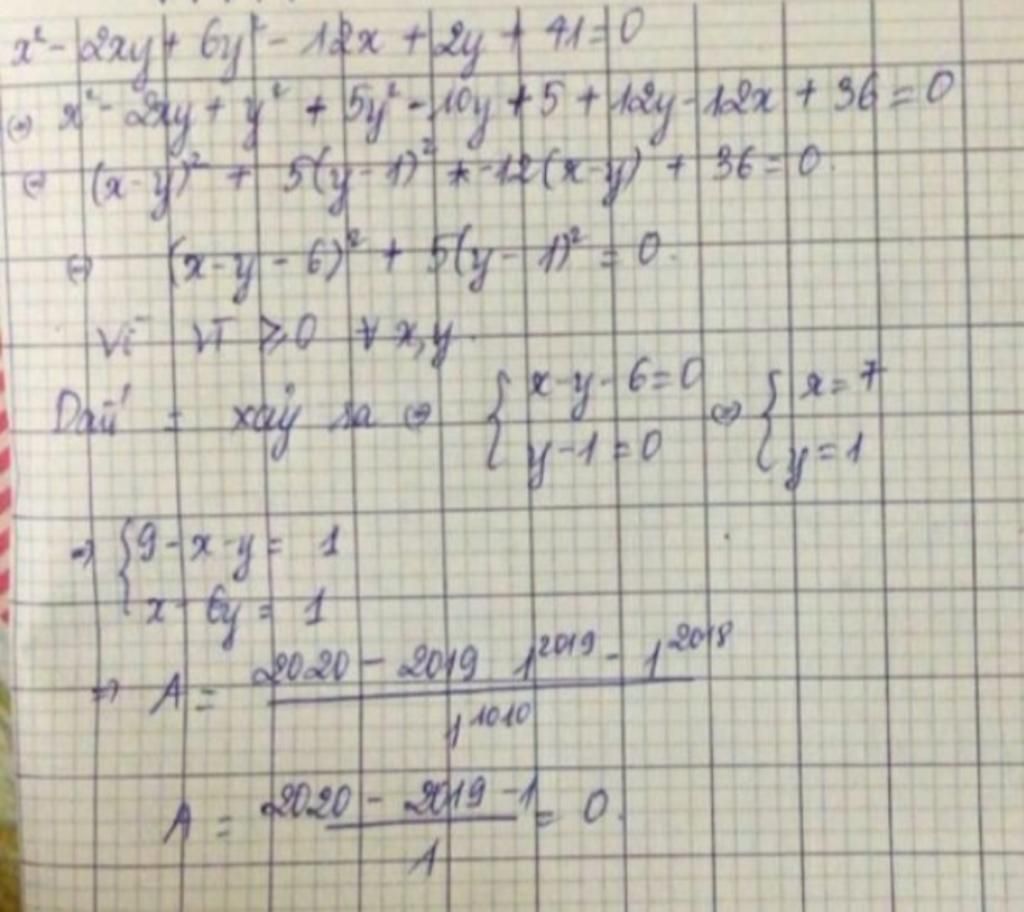 x² - 2xy + 6y² - 12x + 2y + 41 = 0
⇔ x² - 2xy + y² + 5y² - 10y + 5 + 12y - 12x + 36 = 0
⇔ (x-y)² + 5(y-1)² + -12(x-y) + 36 = 0.
⇔ (x-y-6)² + 5(y-1)² = 0.
Vì VT ≥ 0 ∀ x,y.
Dấu = xảy ra ⇔ { x-y-6=0 ⇔ { x=7
y-1=0 y=1
⇒ { 9-x-y = 1
x-6y = 1
⇒ A = 2020 - 2019 1²⁰¹⁹ - 1²⁰¹⁸
1¹⁰¹⁰
A = 2020 - 2019 - 1 = 0.
1